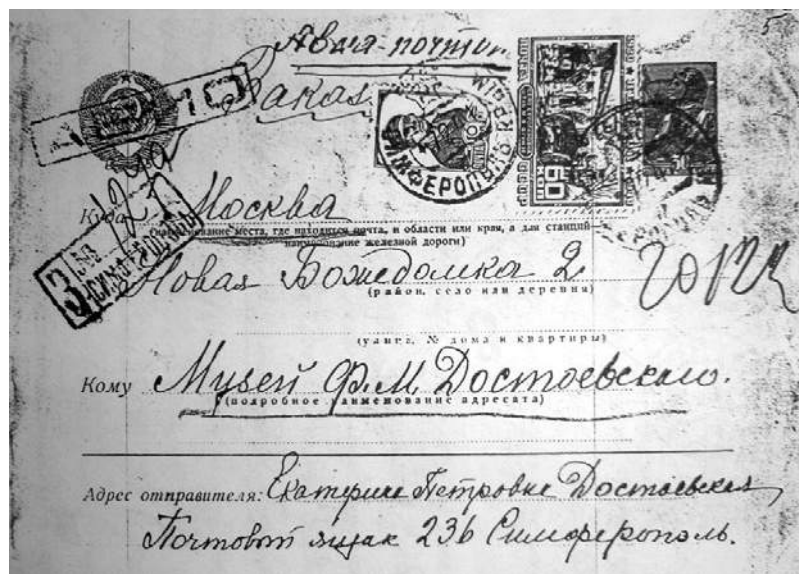 Авиа-почтой
Заказ
СИМФЕРОПОЛЬ КРЫМ
60
Куда Москва
(наименование места, где находится почта, и области или края, а для станций
наименование железной дороги)
З
СИМФЕРОПОЛЬ
Новая Божедомка 2
(район, село или деревня)
(улица, № дома и квартиры)
Кому Музей Ф.М. Достоевского.
(подробное наименование адресата)
Адрес отправителя: Екатерине Петровне Достоевская
Почтовый ящик 236 Симферополь.